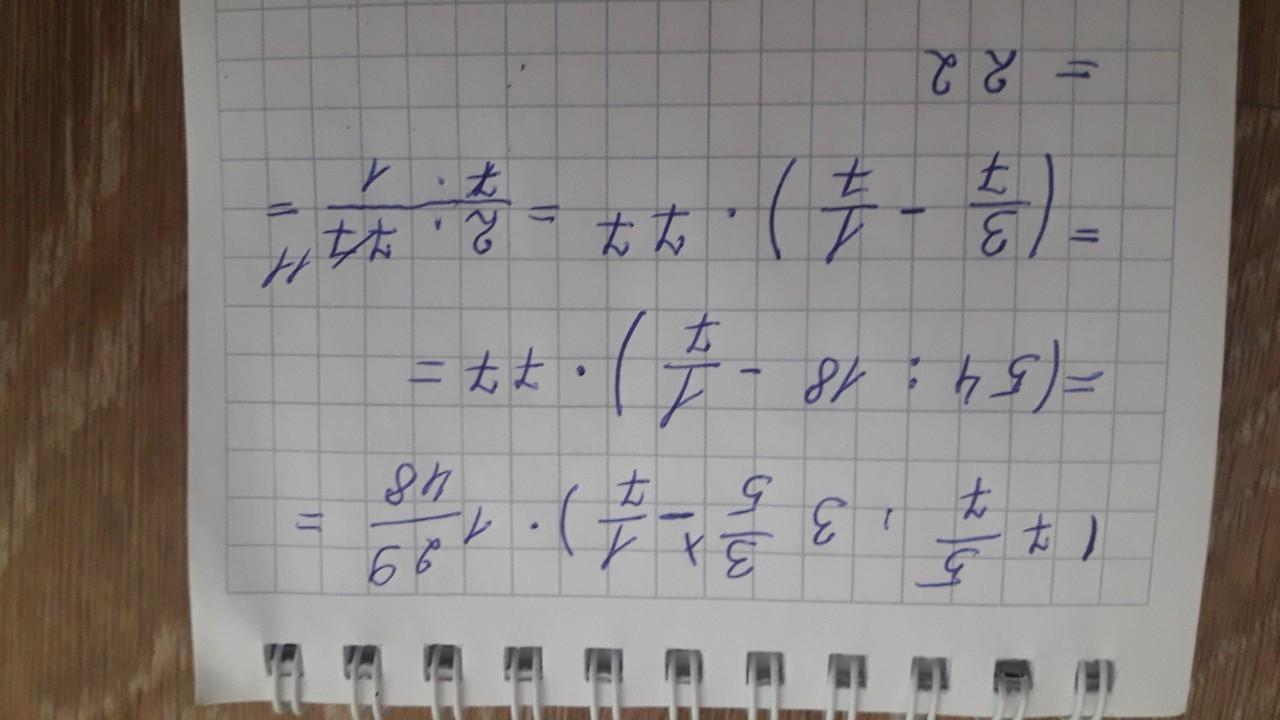 (7 5/7 : 3 3/5 x - 1/7) · 1 29/48 =
= (54 : 18 - 1/7) · 77 =
= (3/7 - 1/7) · 77 = 2 · 77 11 / 7 · 1 =
= 22